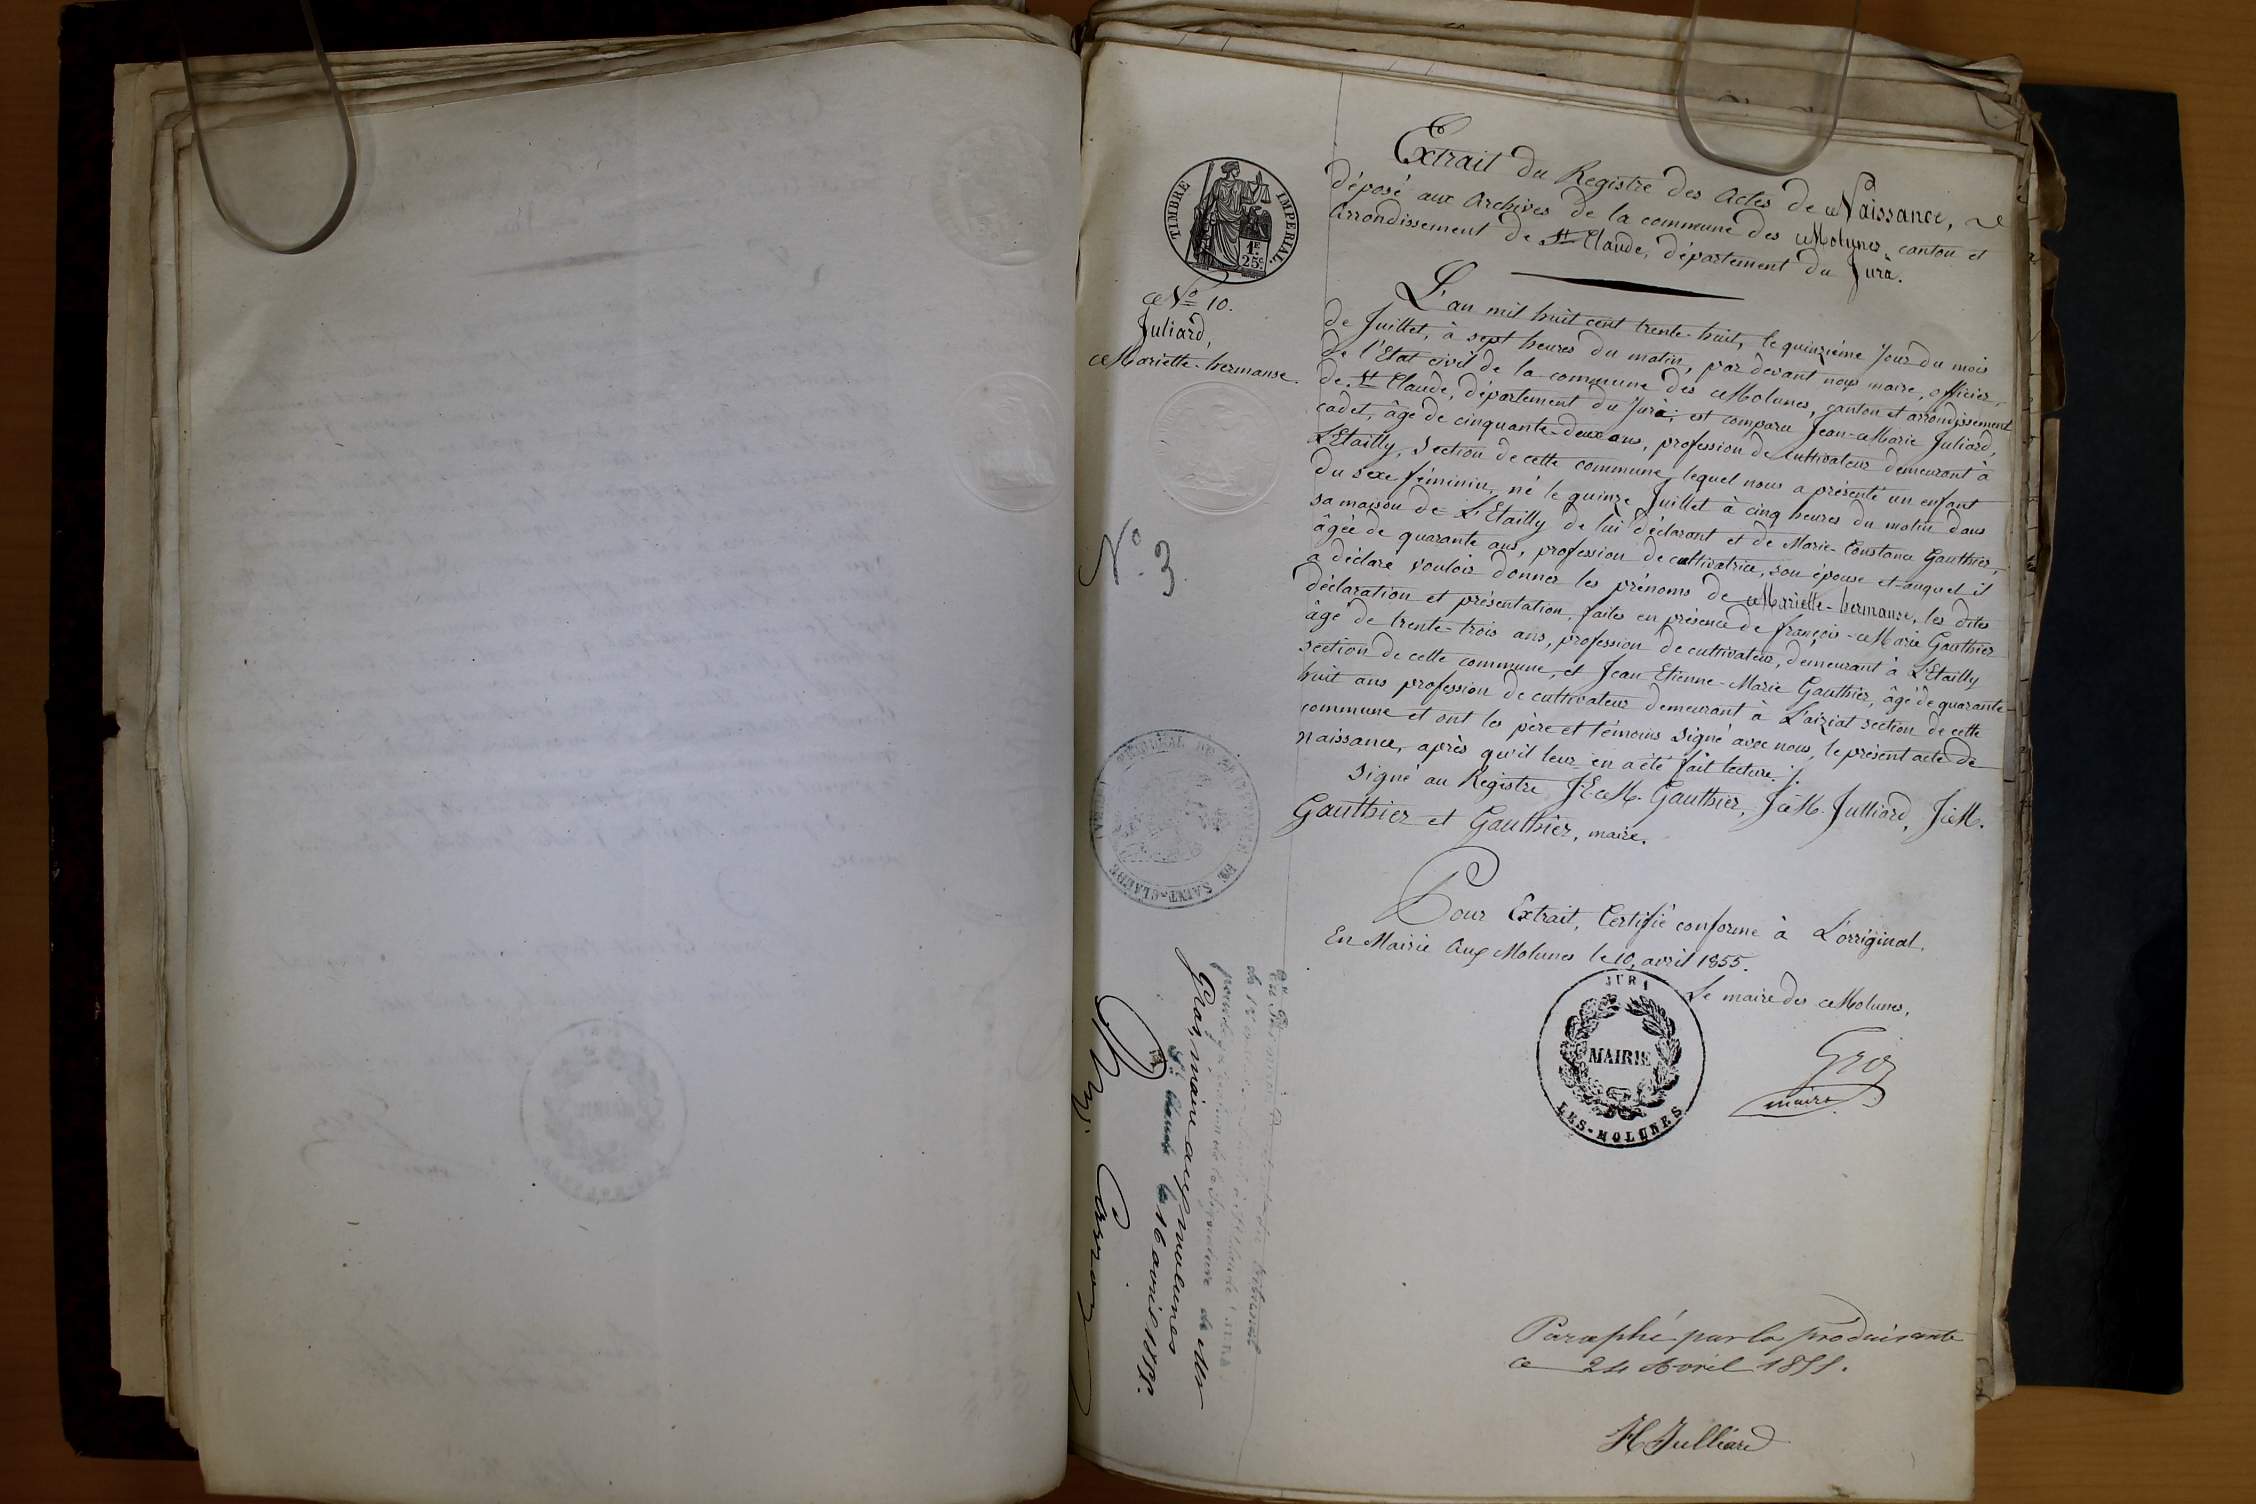 Extrait du Registre des Actes de Naissance,
déposé aux Archives de la commune des Molunes, canton et
Arrondissement de St Claude, département du Jura.
TIMBRE IMPERIAL
1F
25c
No 10.
Juliard,
Mariette-hermanse.
No 3
L'an mil huit cent trente-huit, le quinzième jour du mois
de Juillet, à sept heures du matin, par devant nous maire, officier
de l'Etat civil de la commune des Molunes, canton et arrondissement
de St Claude, département du Jura; est comparu Jean-Marie Juliard,
cadet, âgé de cinquante-deux ans, profession de cultivateur demeurant à
L'Etailly, section de cette commune, lequel nous a présenté un enfant
du sexe féminin, né le quinze Juillet à cinq heures du matin dans
sa maison de L'Etailly de lui déclarant et de Marie-Constance Gauthier,
âgée de quarante ans, profession de cultivatrice, son épouse et auquel il
a déclaré vouloir donner les prénoms de Mariette-hermanse, les dites
déclaration et présentation faites en présence de françois-Marie Gauthier
âgé de trente-trois ans, profession de cultivateur, demeurant à L'Etailly
section de cette commune, et Jean Etienne-Marie Gauthier, âgé de quarante-
huit ans profession de cultivateur demeurant à L'aiziat section de cette
commune et ont les père et témoins signé avec nous, le présent acte de
naissance, après qu'il leur en a été fait lecture ./.
Signé au Registre J.E.M. Gauthier, J.M. Julliard, J.M.
Gauthier et Gauthier, maire.
Pour Extrait, Certifié conforme à L'orriginal.
En Mairie Aux Molunes le 10, avril 1855.
Le maire des Molunes,
JURA
MAIRIE
LES-MOLUNES
Groz
maire
TRIBUNAL DE SAINT-CLAUDE
pour légalisation de la signature de Mr
Groz, maire aux moulunes
St Claude le 16 avril 1855.
Paraphé par la produisante
ce 24 Avril 1855.
H Julliard